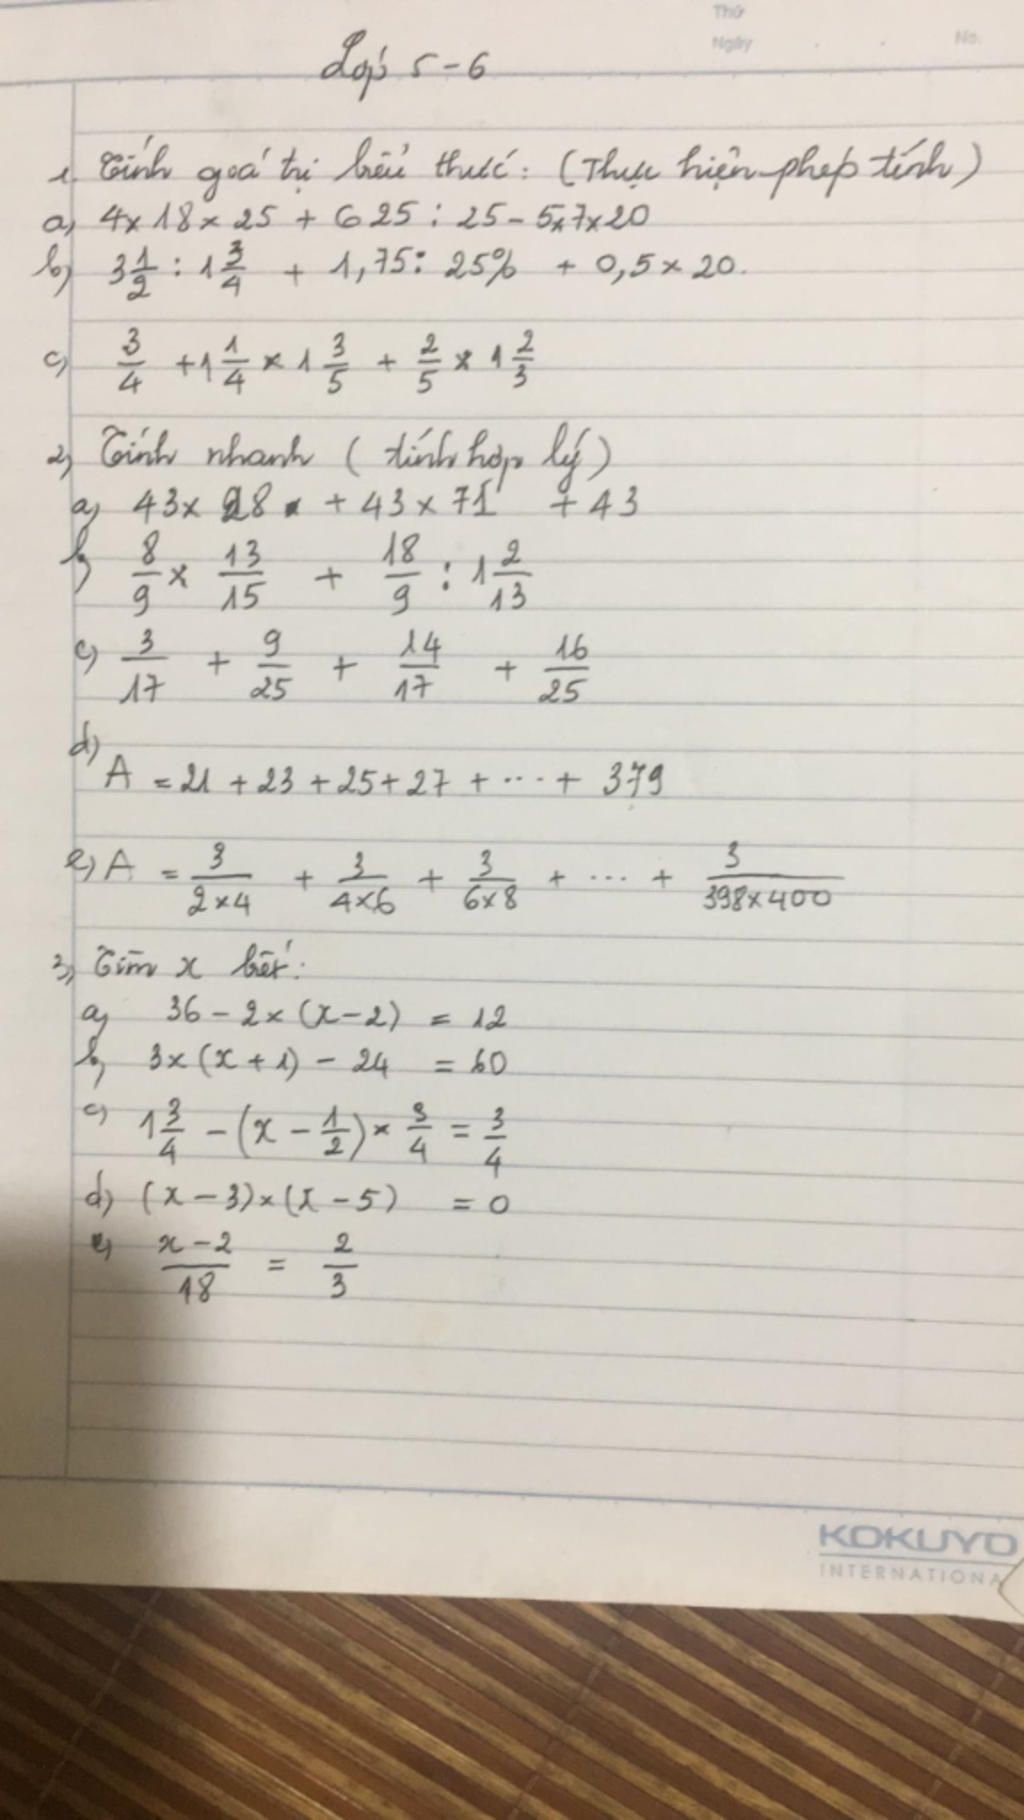 Thứ
Ngày No.
Lớp 5-6
1. Tính giá trị biểu thức: (Thực hiện phép tính)
a) 4 x 18 x 25 + 625 : 25 - 5 x 7 x 20
b) 3 1/2 : 1 3/4 + 1,75 : 25% + 0,5 x 20.
c) 3/4 + 1 1/4 x 1 3/5 + 2/5 x 1 2/3
2) Tính nhanh (tính hợp lý)
a) 43 x 28 + 43 x 71 + 43
b) 8/9 x 13/15 + 18/9 : 1 2/13
c) 3/17 + 9/25 + 14/17 + 16/25
d) A = 21 + 23 + 25 + 27 + ... + 379
e) A = 3/(2x4) + 3/(4x6) + 3/(6x8) + ... + 3/(398x400)
3) Tìm x biết:
a) 36 - 2 x (x - 2) = 12
b) 3 x (x + 1) - 24 = 60
c) 1 3/4 - (x - 1/2) x 3/4 = 3/4
d) (x - 3) x (x - 5) = 0
e) (x - 2)/18 = 2/3
KOKUYO
INTERNATIONA